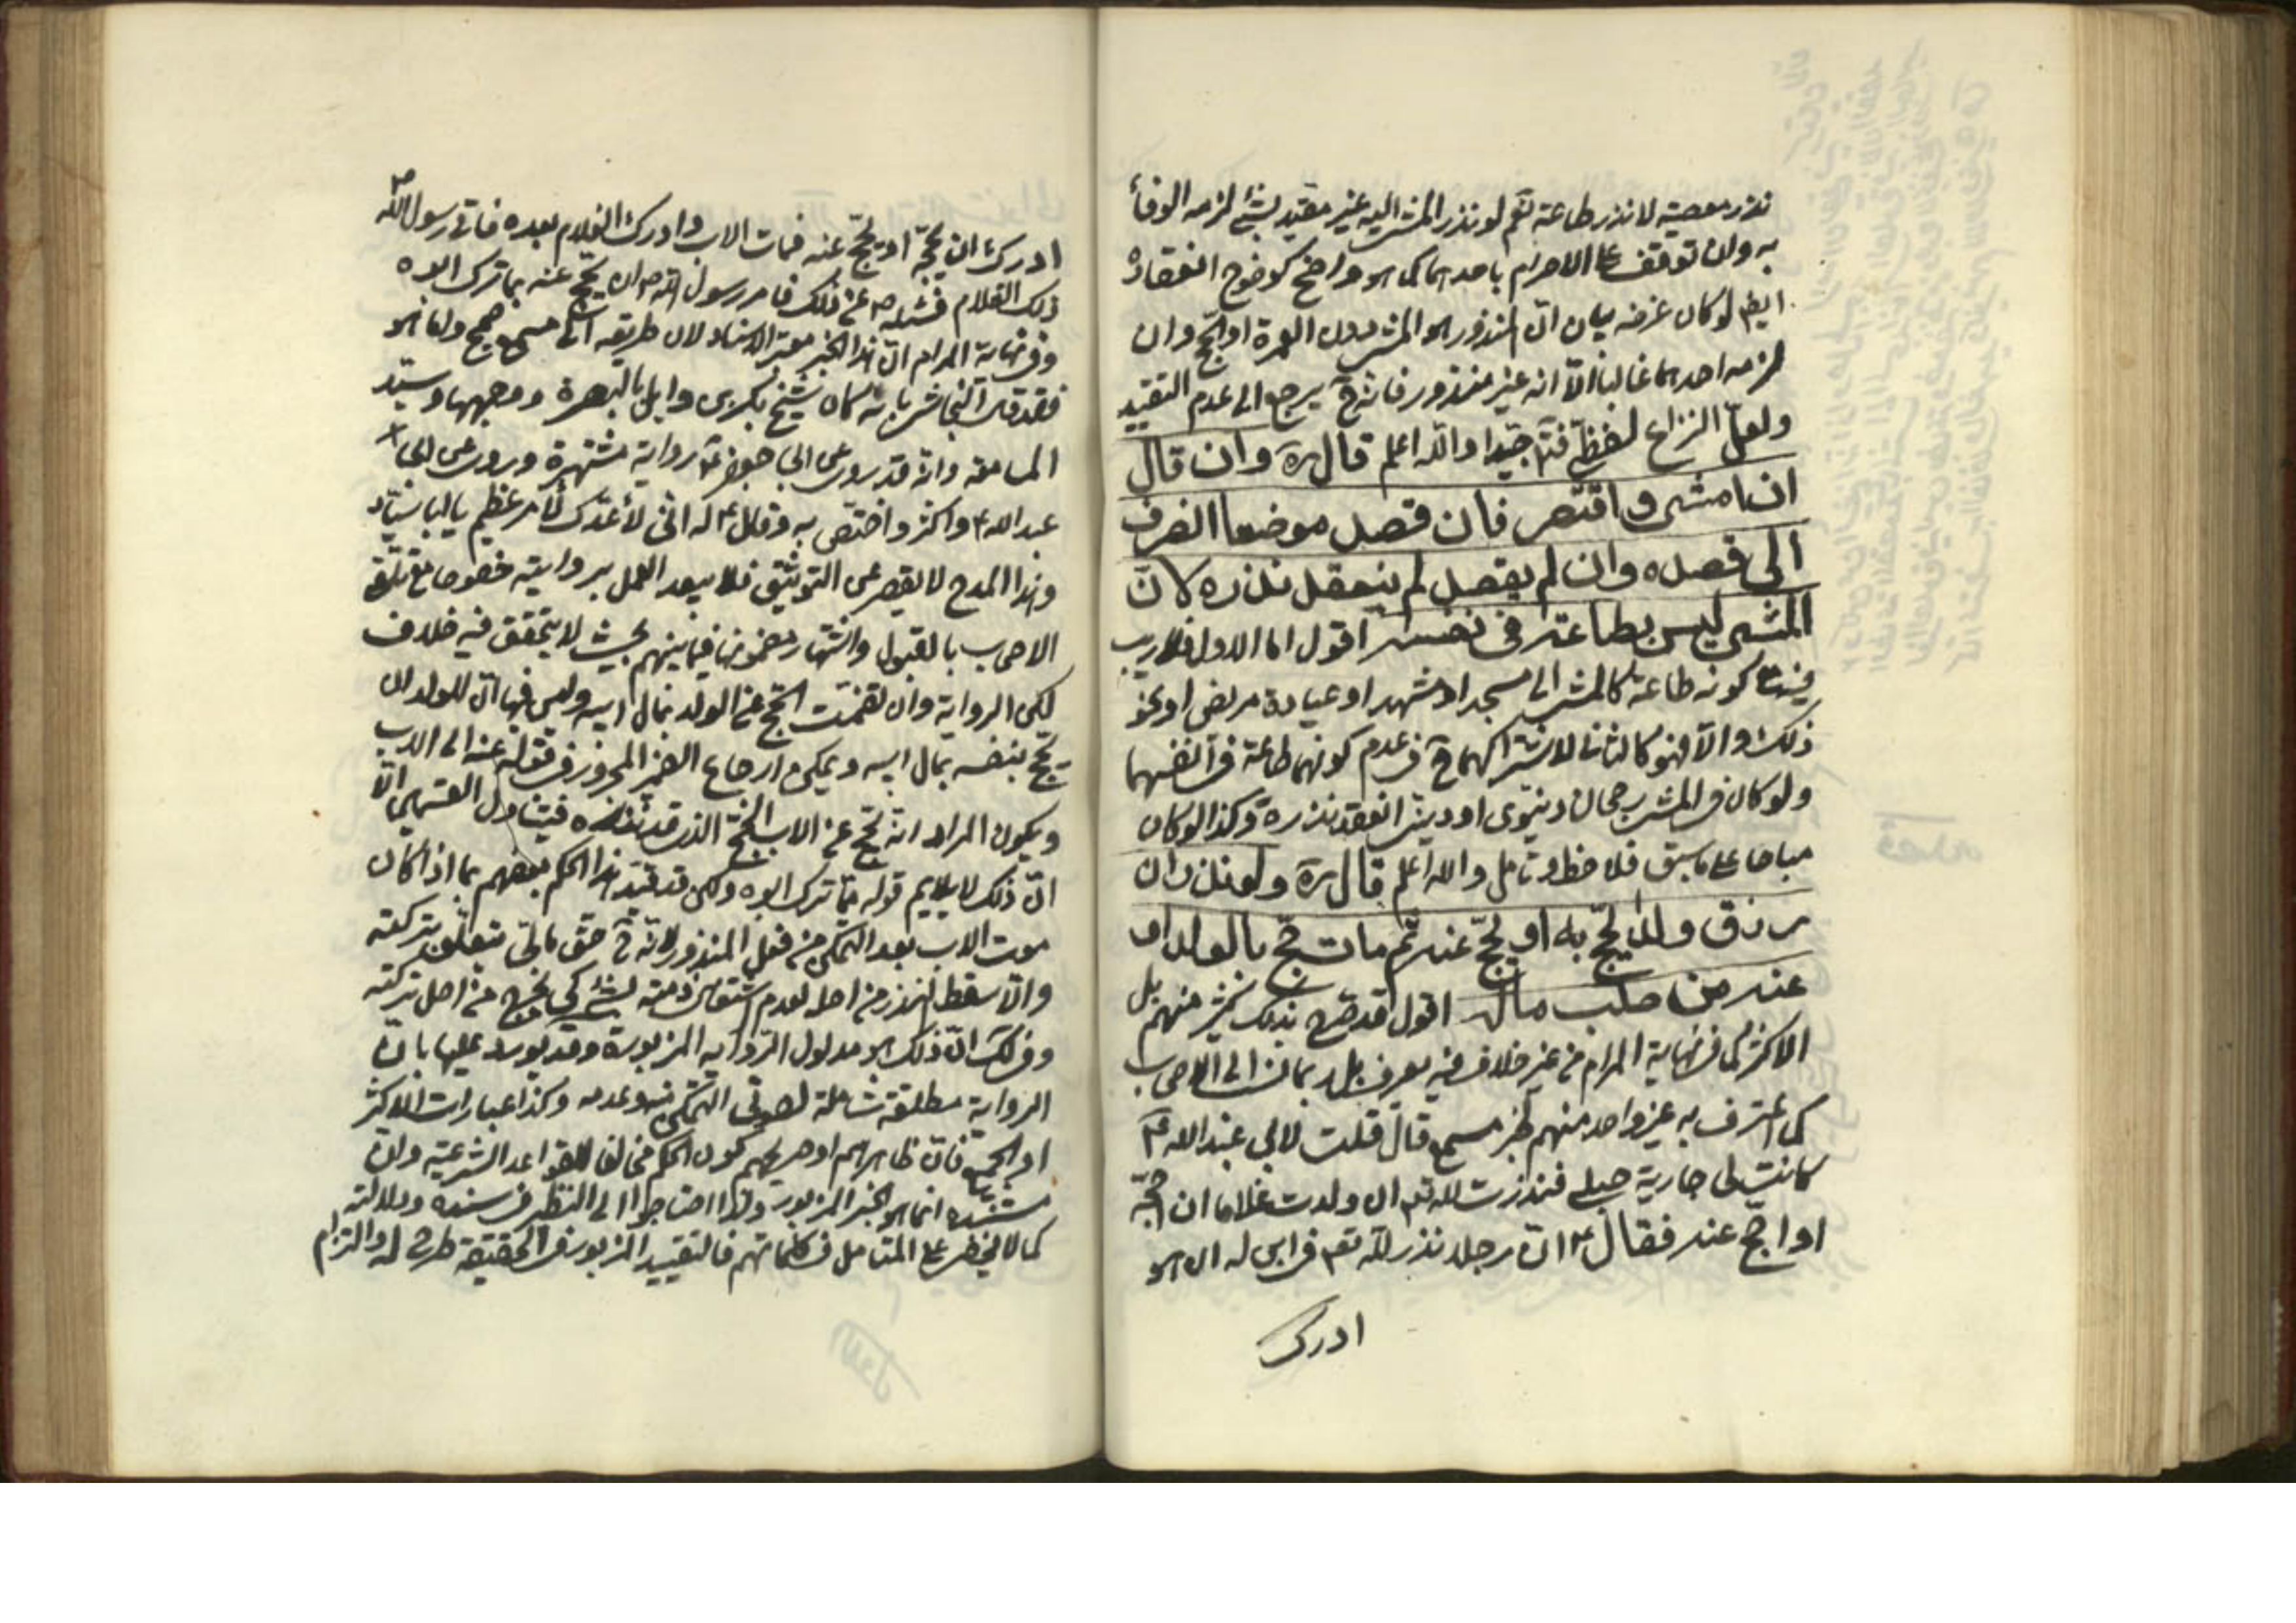 نذر معصية لا نذر طاعة نعم لو نذر المشي اليه غير مقيد بشئ لزمه الوفأ
به وان توقف على الاحرام باحدهما كما هو واضح كوضوح انعقاده
ايضا لو كان غرضه بيان ان المنذور هو المشي دون العمرة او الحج وان
لزمه احدهما غالبا الا انه غير منذور فانه ح يرجع الى عدم التقييد
ولعل النزاع لفظي فتدبر جيدا والله اعلم قال ره وان قال
ان امشي واقتصر فان قصد موضعا انصرف
الى قصده وان لم يقصد لم ينعقد نذره لان
المشي ليس بطاعة في نفسه اقول اما الاول فلا ريب
فيه مع كونه طاعة كالمشي الى مسجد او مشهد او عيادة مريض او نحو
ذلك والا فهو كالثاني لاشتراكهما ح في عدم كونهما طاعة في انفسهما
ولو كان في المشي رجحان دنيوي او ديني انعقد نذره وكذا لو كان
مباحا على ما سبق فلاحظ وتامل والله اعلم قال ره ولو نذر ان
رزق ولدا يحج به او يحج عنه ثم مات حج بالولد او
عنه من صلب ماله اقول قد صرح بذلك كثير منهم بل
الاكثر كما في نهاية المرام من غير خلاف فيه يعرف بل ربما نسب الى الاصحاب
كما اعترف به غير واحد منهم لخبر مسمع قال قلت لابي عبد الله ع
كانت لي جارية حبلى فنذرت لله تعم ان ولدت غلاما ان احجه
او احج عنه فقال ع ان رجلا نذر لله تعم في ابن له ان هو
ادرك
ادرك ان يحجه او يحج عنه فمات الاب وادرك الغلام بعده فاتى رسول الله ص
ذلك الغلام فسئله ص عن ذلك فامر رسول الله ص ان يحج عنه بما ترك ابوه
وفي نهاية المرام ان هذا الخبر معتبر الاسناد لان طريقه الى مسمع صحيح واما هو
فقد قال النجاشي بانه كان شيخ بكر بن وائل بالبصرة ووجهها وسيد
المسامعة وانه قد روى عن ابي جعفر ع رواية مشتهرة وروى عن ابي
عبد الله ع واكثر واختص به وقال ع له اني لأعدك لأمر عظيم يا ابا سيار
وهذا المدح لا يقصر عن التوثيق فلا يبعد العمل بروايته خصوصا مع تلقي
الاصحاب بالقبول واشتهار مضمونها فيما بينهم بحيث لا يتحقق فيه خلاف
لكن الرواية وان تضمنت الحج عن الولد بمال ابيه وليس فيها ان للولد ان
يحج بنفسه بمال ابيه ويمكن ارجاع الضمير المجرور في قوله عنه الى الاب
ويكون المراد انه يحج عن الاب الحج الذي قد نذره فيتناول القسمين الا
ان ذلك لا يلايم قوله مما ترك ابوه ولكن قد قيد هذا الحكم بعضهم بما اذا كان
موت الاب بعد التمكن من فعل المنذور لانه ح حق مالي متعلق بتركته
والا سقط النذر من اصله لعدم اشتغال ذمته بشئ كي يخرج من اصل تركته
وفي لك ان ذلك هو مدلول الرواية المزبورة وقد يورد عليها بان
الرواية مطلقة شاملة لصورتي التمكن منه وعدمه وكذا عبارات الاكثر
او الجميع فان ظاهرهم او صريحهم كون الحكم مخالفا للقواعد الشرعية وان
مستنده انما هو الخبر المزبور ولذا احتاجوا الى النظر في سنده ودلالته
كما لا يخفى على المتامل في كلماتهم فالتقييد المزبور في الحقيقة طرح له والتزام